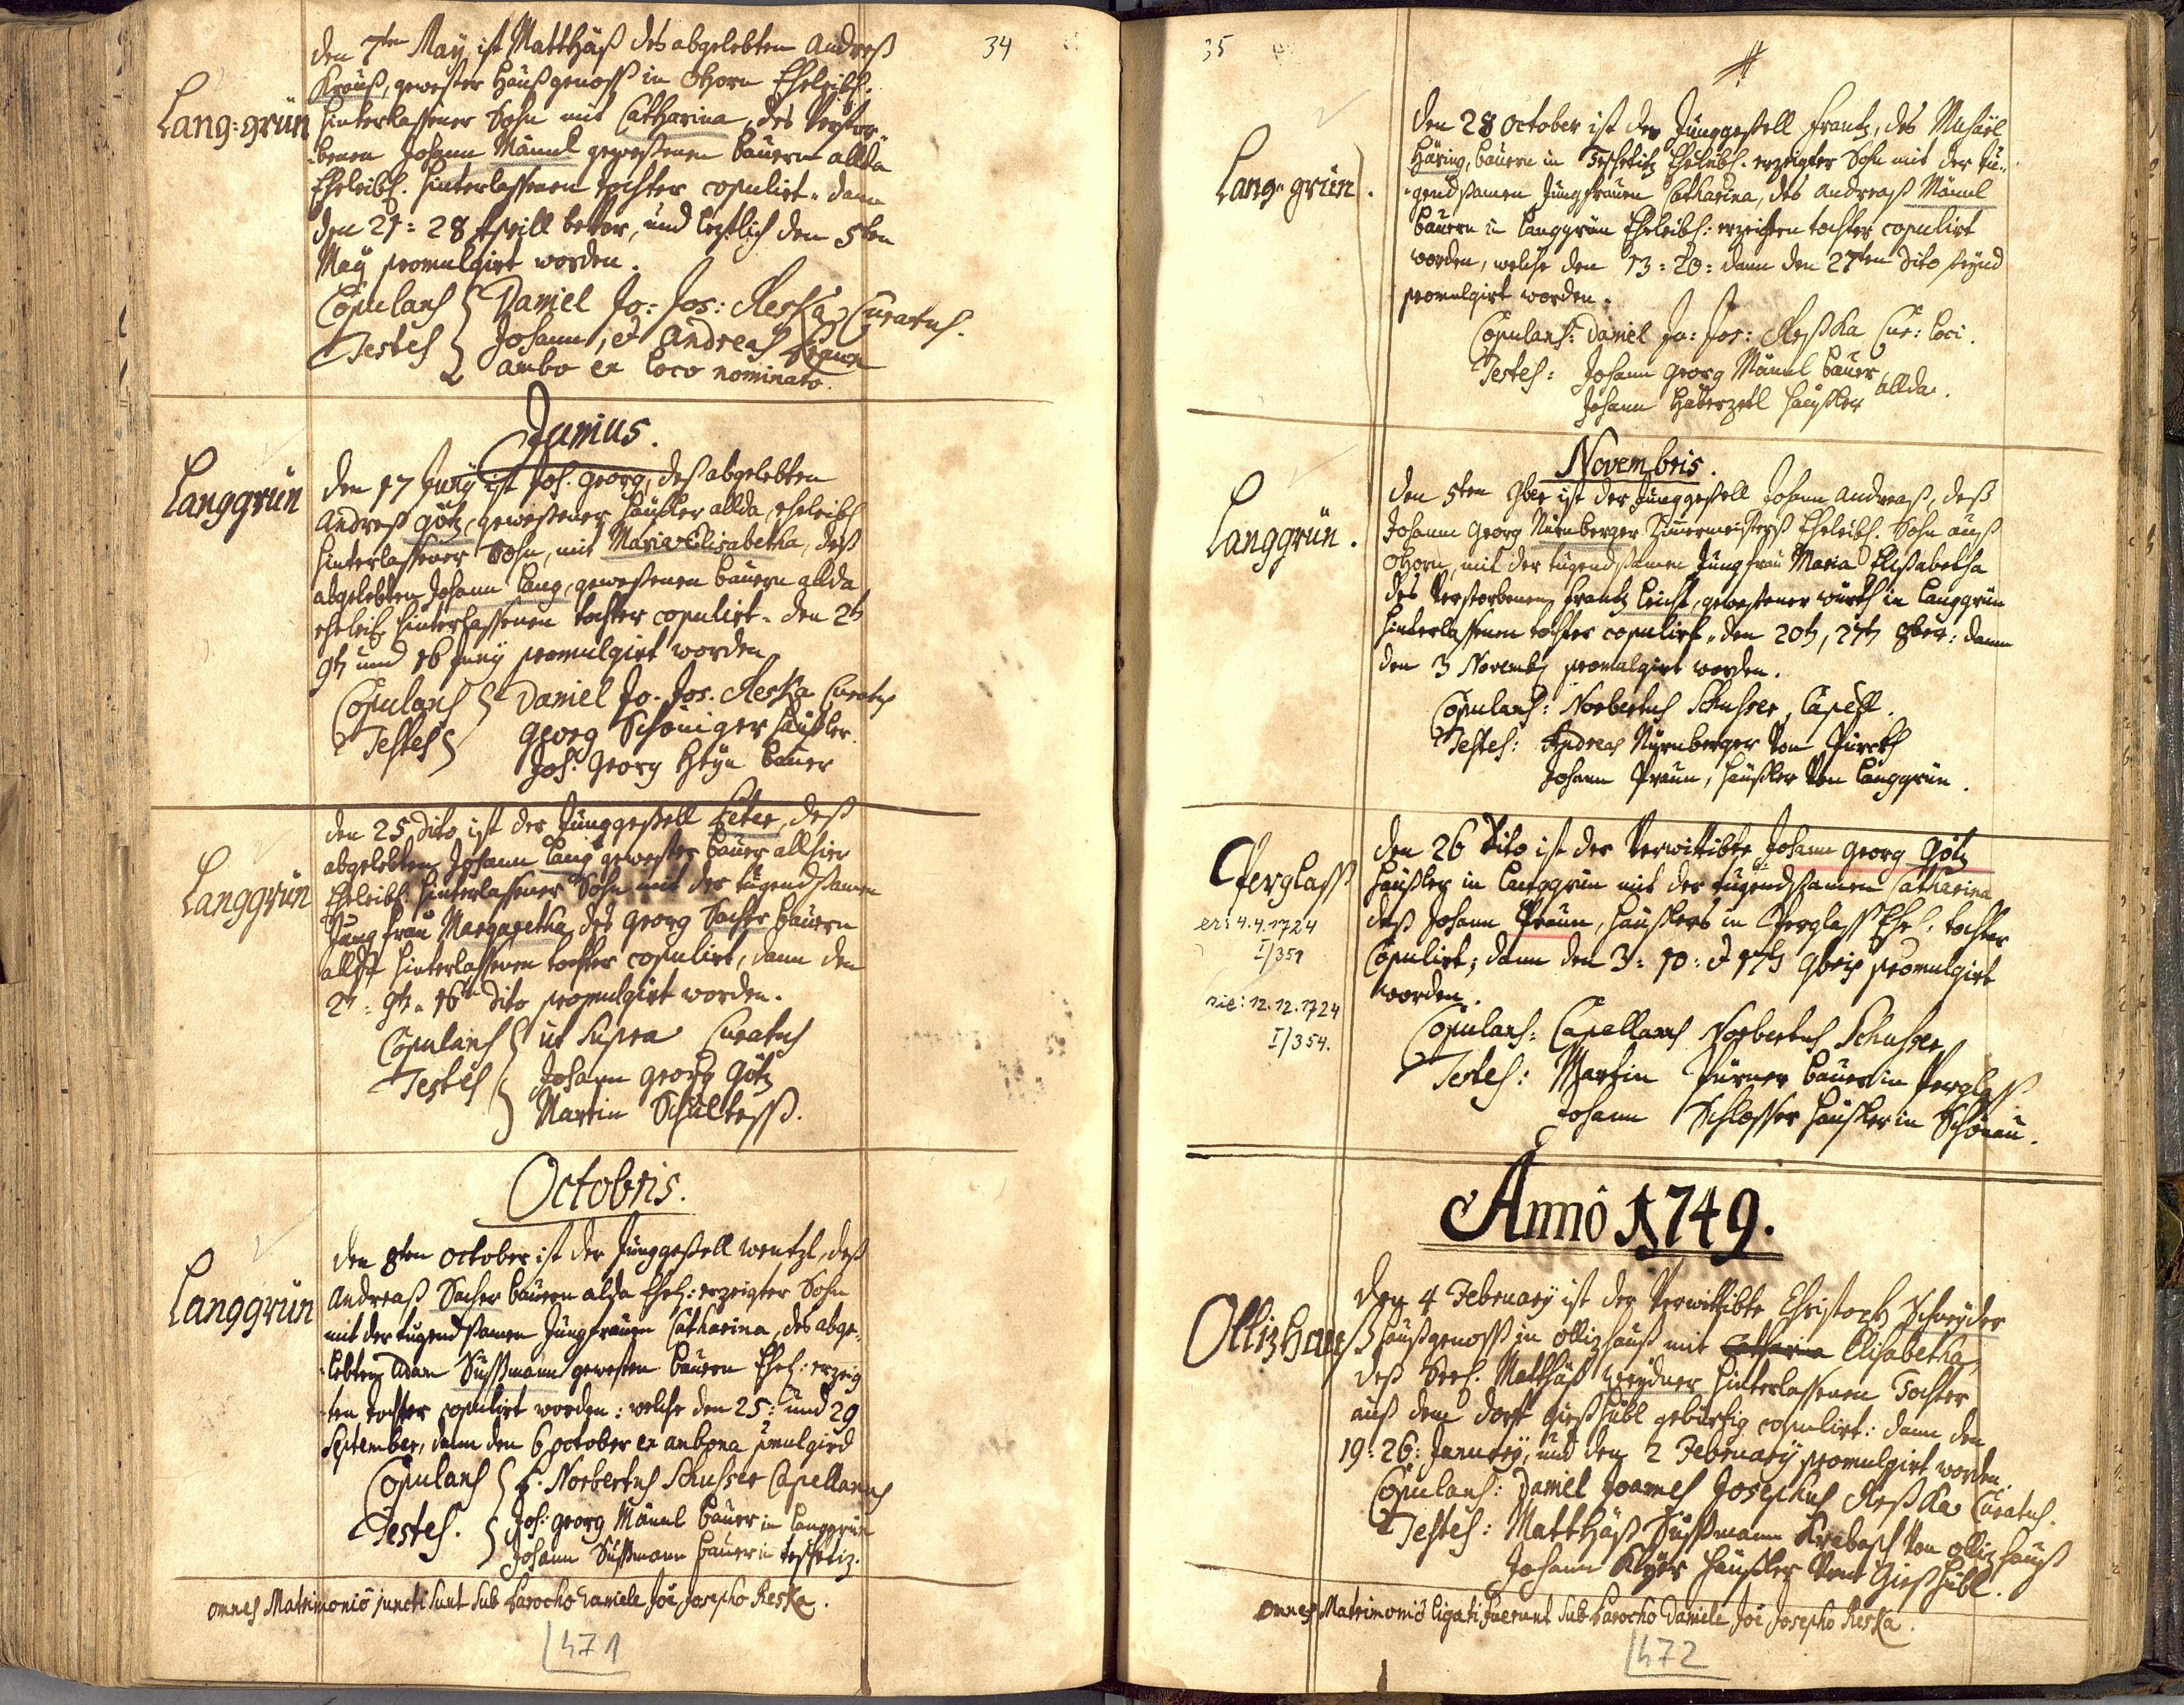 34
Lang=grün
den 7ten May ist Matthäß des abgelebten Andreß
Krauß, gewester Haußgenoss in Thorn Eheleibl.
hinterlassener Sohn mit Catharina, des Verstor-
benen Johann Männl gewesenen Bauern allda
Eheleibl. hinterlassenen Tochter copulirt. dann
den 21= 28 Aprill bevor, und letztlich den 5ten
May promulgirt worden.
Copulans Daniel Jo: Jos: Reska Curatus.
Testes Johann, et Andreas
ambo ex loco nominato.
Junius.
Langgrün
den 17 Juny ist Joh. Georg, deß abgelebten
Andreß Götz, gewesener Häußler allda, eheleibl
hinterlassener Sohn, mit Maria Elisabetha, deß
abgelebten Johann Lang, gewesenen Bauern allda
eheleibl hinterlassenen Tochter copulirt. den 2t
9t und 16 Juny promulgirt worden.
Copulans Daniel Jo. Jos. Reska Curatus
Testes Georg Schöniger Häußler.
Joh. Georg Heyn Bauer
Langgrün
den 25 dito ist der Junggesell Peter, deß
abgelebten Johann Lang gewester Bauer allhier
Eheleibl. hinterlassener Sohn mit der tugendsamen
Jungfrau Margaretha des Georg Sacher Bauern
allda hinterlassenen Tochter copulirt, dann den
2t= 9t= 16ten dito promulgirt worden.
Copulans ut Supra Curatus
Testes Johann Georg Götz
Martin Schulteß.
Octobris.
Langgrün
den 8ten October ist der Junggesell Wentzl, deß
Andreaß Sacher Bauern alda Ehel: erzeigter Sohn
mit der tugendsamen Jungfrauen Catharina, des abge-
lebten Adam Süßmann gewesten Bauern Ehel: erzeig
ten Tochter copulirt worden: welche den 25: und 29
September, dann den 6 October ex ambona pmulgird
Copulans P. Norbertus Schusser Capellanus
Testes. Joh: Georg Männl Bauer in Langgrün
Johann Süßmann Bauer in Teschetiz.
omnes Matrimonio juncti sunt Sub Parocho Daniele Joe Josepho Reska.
471
35
Lang=grün.
den 28 October ist der Junggesell Frantz, des Michäel
Häring, Bauern in Teschetitz Eheleibl. erzeigter Sohn mit der tu-
gendsamen Jungfrauen Catharina, des Andreaß Männl
Bauern in Langgrün Eheleibl: erzeigten Tochter copulirt
worden, welche den 13= 20= dann den 27ten dito seynd
promulgirt worden.
Copulans: Daniel Jo: Jos: Reßka Cur: loci.
Testes: Johann Georg Männl Bauer
Johann Haberzetl Häußler allda.
Novembris.
Langgrün.
den 5ten 9ber ist der Junggesell Johann Andreaß, deß
Johann Georg Nürnberger Zimermeisterß Eheleibl. Sohn auß
Thorn, mit der tugendsamen Jungfrau Maria Elisabetha
des Verstorbenen Frantz Leicht, gewesener Würth in Langgrün
hinterlassenen Tochter copulirt, den 20t, 27t 8ber: dann
den 3 Novembr promulgirt worden.
Copulans: Norbertus Schusser, Capell.
Testes: Andreas Nürnberger Von
Johann Praun, Häußler Von Langgrün.
Perglaß
er: 4.4.1724
I/351
sie: 12.12.1724
I/354.
den 26 dito ist der Verwittibte Johann Georg Götz
Häußler in Langgrün mit der tugendsamen Catharina
deß Johann Praun, Häußlers in Perglaß Ehel. Tochter
Copulirt; dann den 3= 10= et 17t 9bris promulgirt
worden.
Copulans: Capellanus Norbertus Schusser
Testes: Martin Pürner Bauer in Perglaß
Johann Schlosser Häußler in Schönau.
Anno 1749.
Ollizhauß
den 4 February ist der Verwittibte Christoph Schneyder
Haußgenoss in Ollizhauß mit Catharina Elisabetha,
deß Seel. Matthäß Weydner hinterlassenen Tochter
auß dem Dorff Gießhübl gebürtig copulirt: dann den
19= 26: January, und den 2 February promulgirt worden.
Copulans: Daniel Joannes Josephus Reßka Curatus.
Testes: Matthäß Süßmann Von Ollizhauß
Johann Häußler Von Gießhübl.
omnes Matrimonio ligati fuerunt Sub Parocho Daniele Joe Josepho Reska.
472